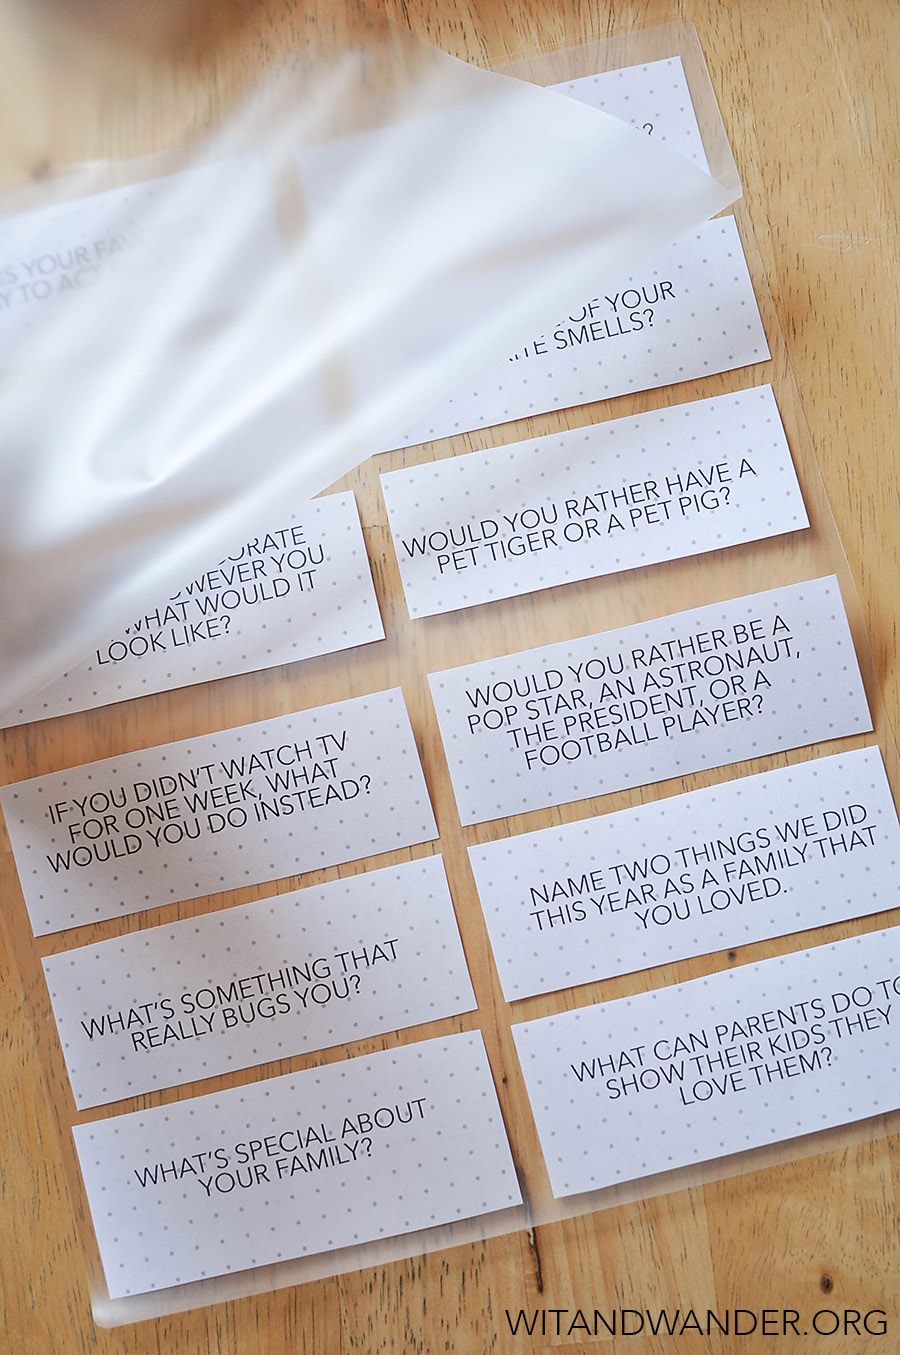 ?
S YOUR FAVO
Y TO ACT
OF YOUR
ITE SMELLS?
WOULD YOU RATHER HAVE A
PET TIGER OR A PET PIG?
ORATE
OWEVER YOU
WHAT WOULD IT
LOOK LIKE?
WOULD YOU RATHER BE A
POP STAR, AN ASTRONAUT,
THE PRESIDENT, OR A
FOOTBALL PLAYER?
IF YOU DIDN'T WATCH TV
FOR ONE WEEK, WHAT
WOULD YOU DO INSTEAD?
NAME TWO THINGS WE DID
THIS YEAR AS A FAMILY THAT
YOU LOVED.
WHAT'S SOMETHING THAT
REALLY BUGS YOU?
WHAT CAN PARENTS DO TO
SHOW THEIR KIDS THEY
LOVE THEM?
WHAT'S SPECIAL ABOUT
YOUR FAMILY?
WITANDWANDER.ORG